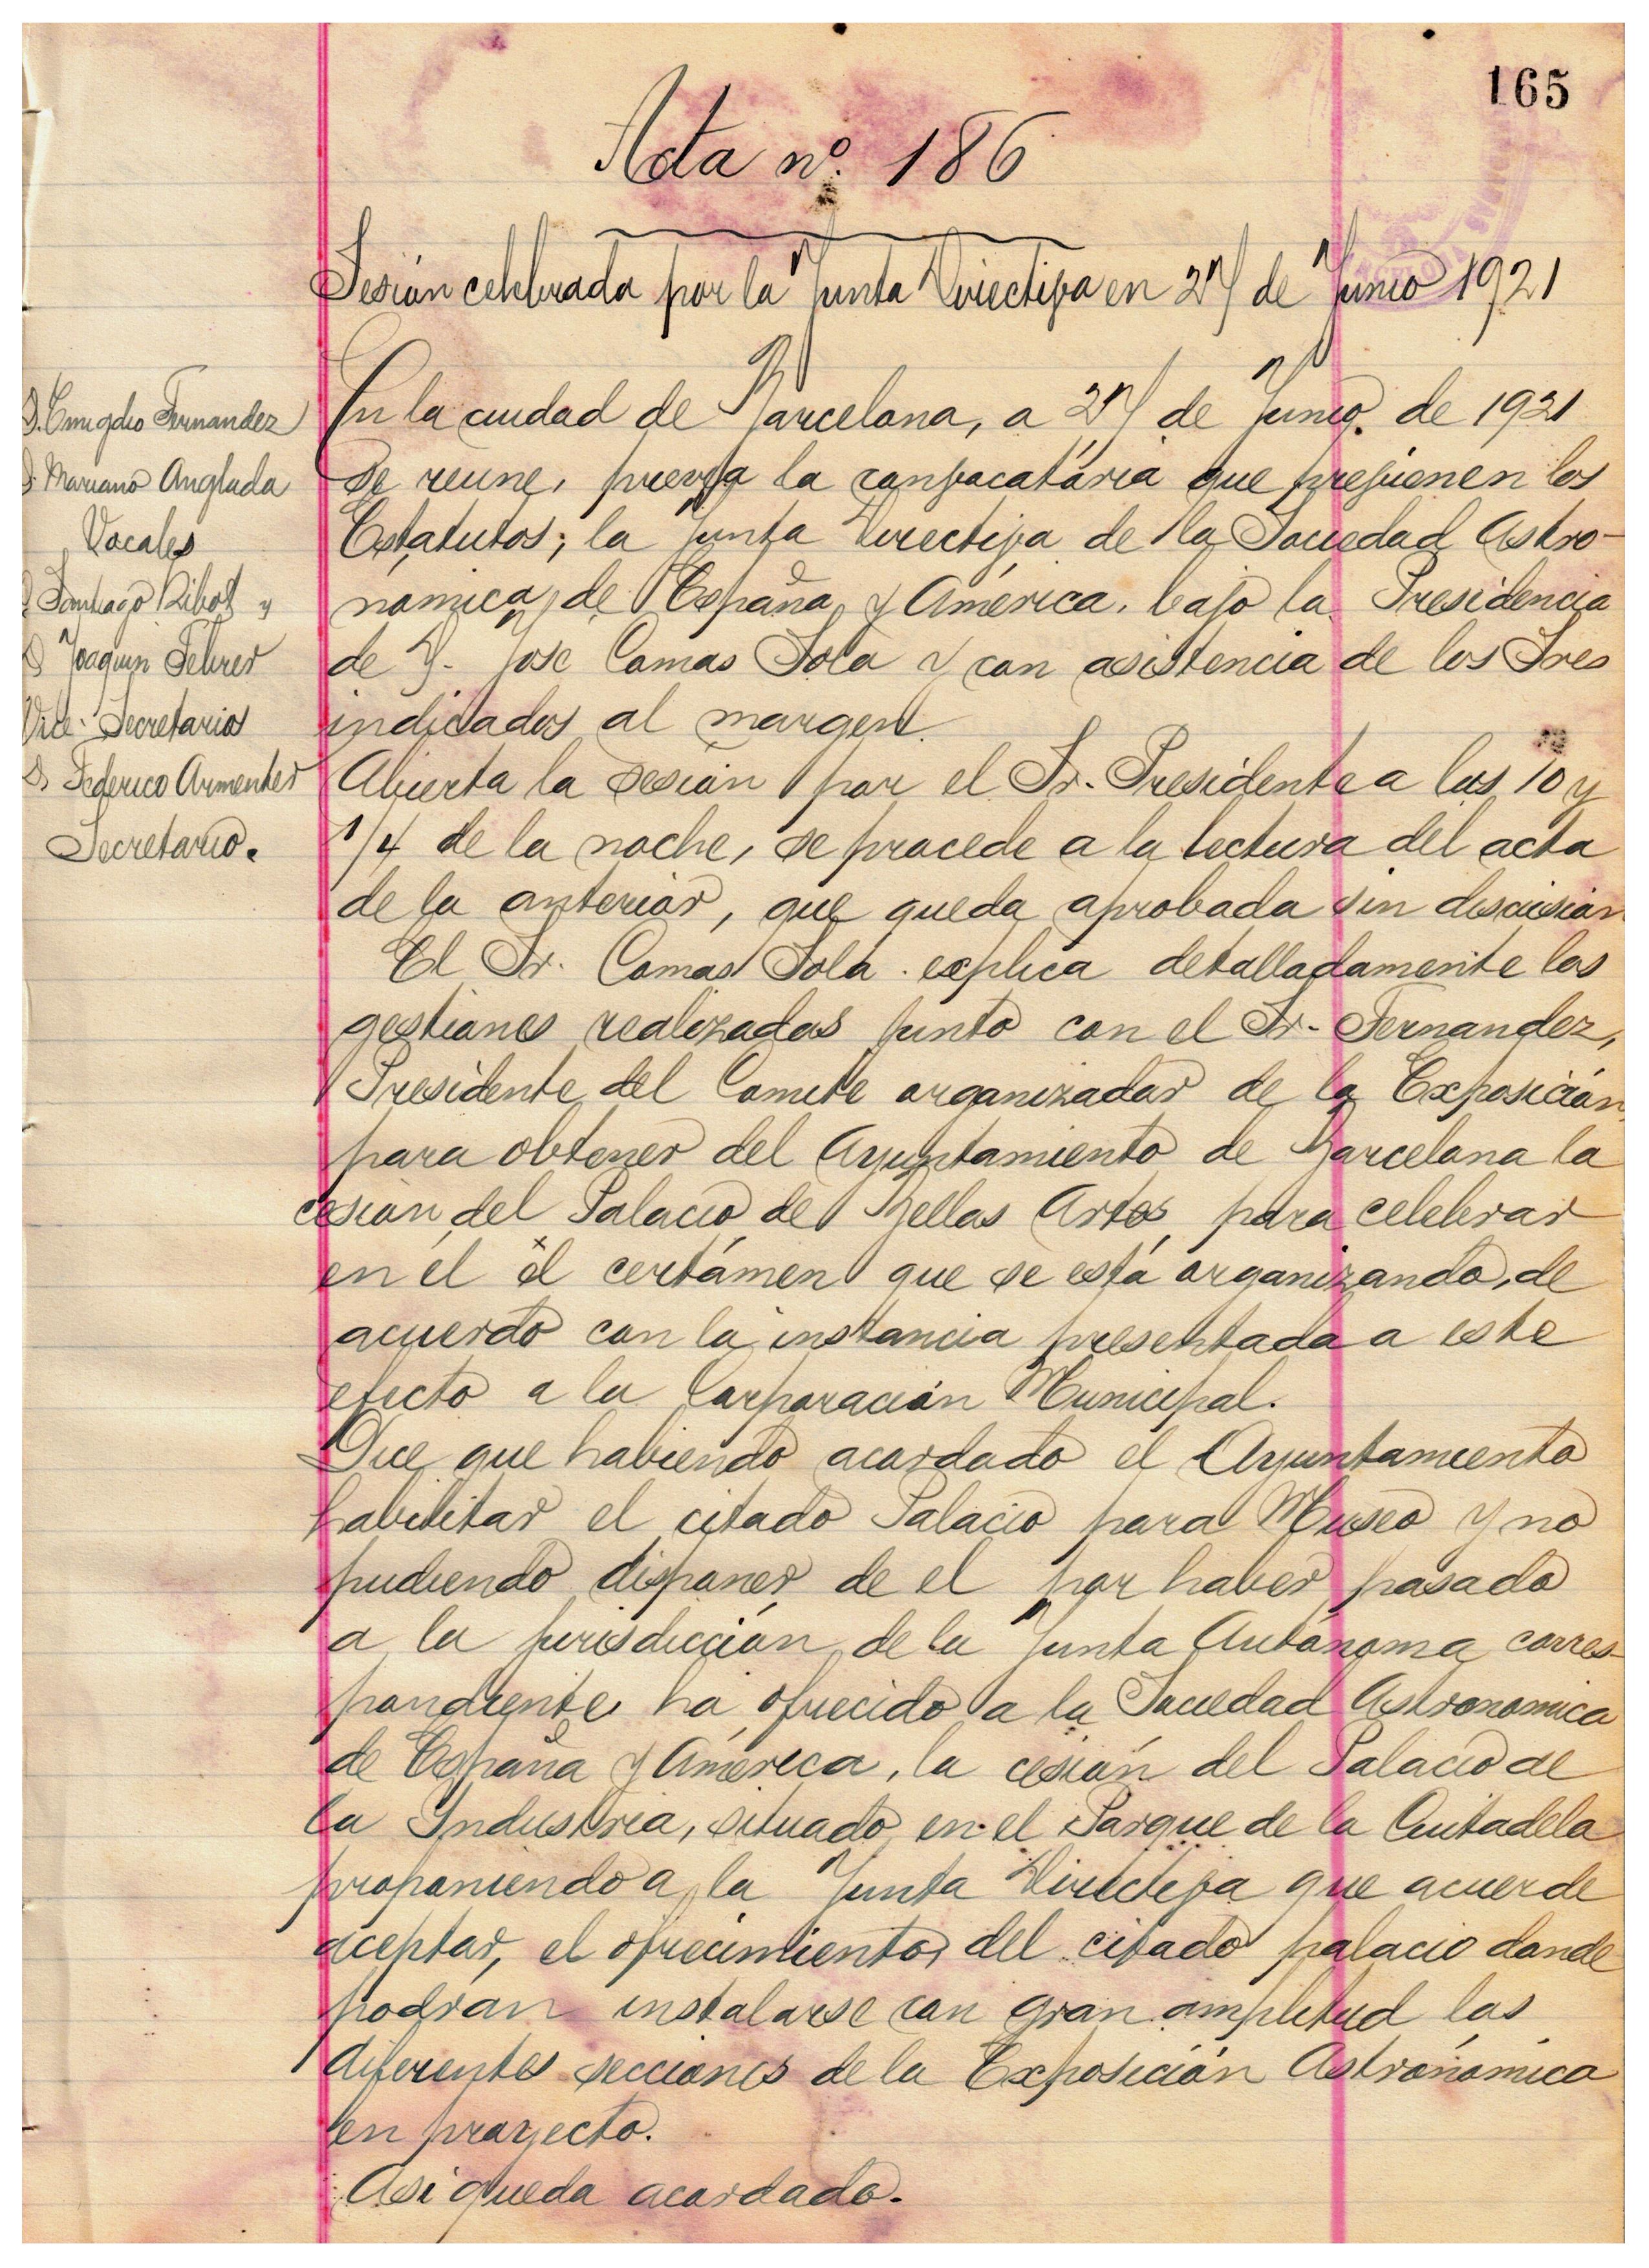 165
Acta nº. 186
Sesión celebrada por la Junta Directiva en 27 de Junio 1921
D. Emigdio Fernandez
D. Mariano Anglada
Vocales
D Santiago Ribot y
D Joaquin Febrer
Vice-Secretarios
D Federico Armenter
Secretario.
En la ciudad de Barcelona, a 27 de Junio. de 1921
se reune, previa la convocatória que previenen los
Estatutos; la Junta Directiva de la Sociedad Astro-
nomica de España y América, bajo la Presidencia
de D. José Comas Solá y con asistencia de los Sres
indicados al margen.
Abierta la sesión por el Sr. Presidente a las 10 y
1/4 de la noche, se procede a la lectura del acta
de la anterior, que queda aprobada sin discusión
El Sr. Comas Solá explica detalladamente las
gestiones realizadas junto con el Sr. Fernandez,
Presidente del Comite organizador de la Exposición
para obtener del Ayuntamiento de Barcelona la
cesión del Palacio de Bellas Artes para celebrar
en él el certámen que se está organizando, de
acuerdo con la instancia presentada a este
efecto a la Corporación Municipal.
Dice que habiendo acordado el Ayuntamiento
habilitar el citado Palacio para Museo y no
pudiendo disponer de el por haber pasado
a la jurisdicción de la Junta Autónoma corres-
pondiente ha ofrecido a la Sociedad Astronomica
de España y América, la cesión del Palacio de
la Industria, situado en el Parque de la Ciutadela
proponiendo a la Junta Directiva que acuerde
aceptar, el ofrecimiento del citado palacio donde
podrán instalarse con gran amplitud las
diferentes secciones de la Exposición Astronómica
en proyecto.
Asi queda acordado.